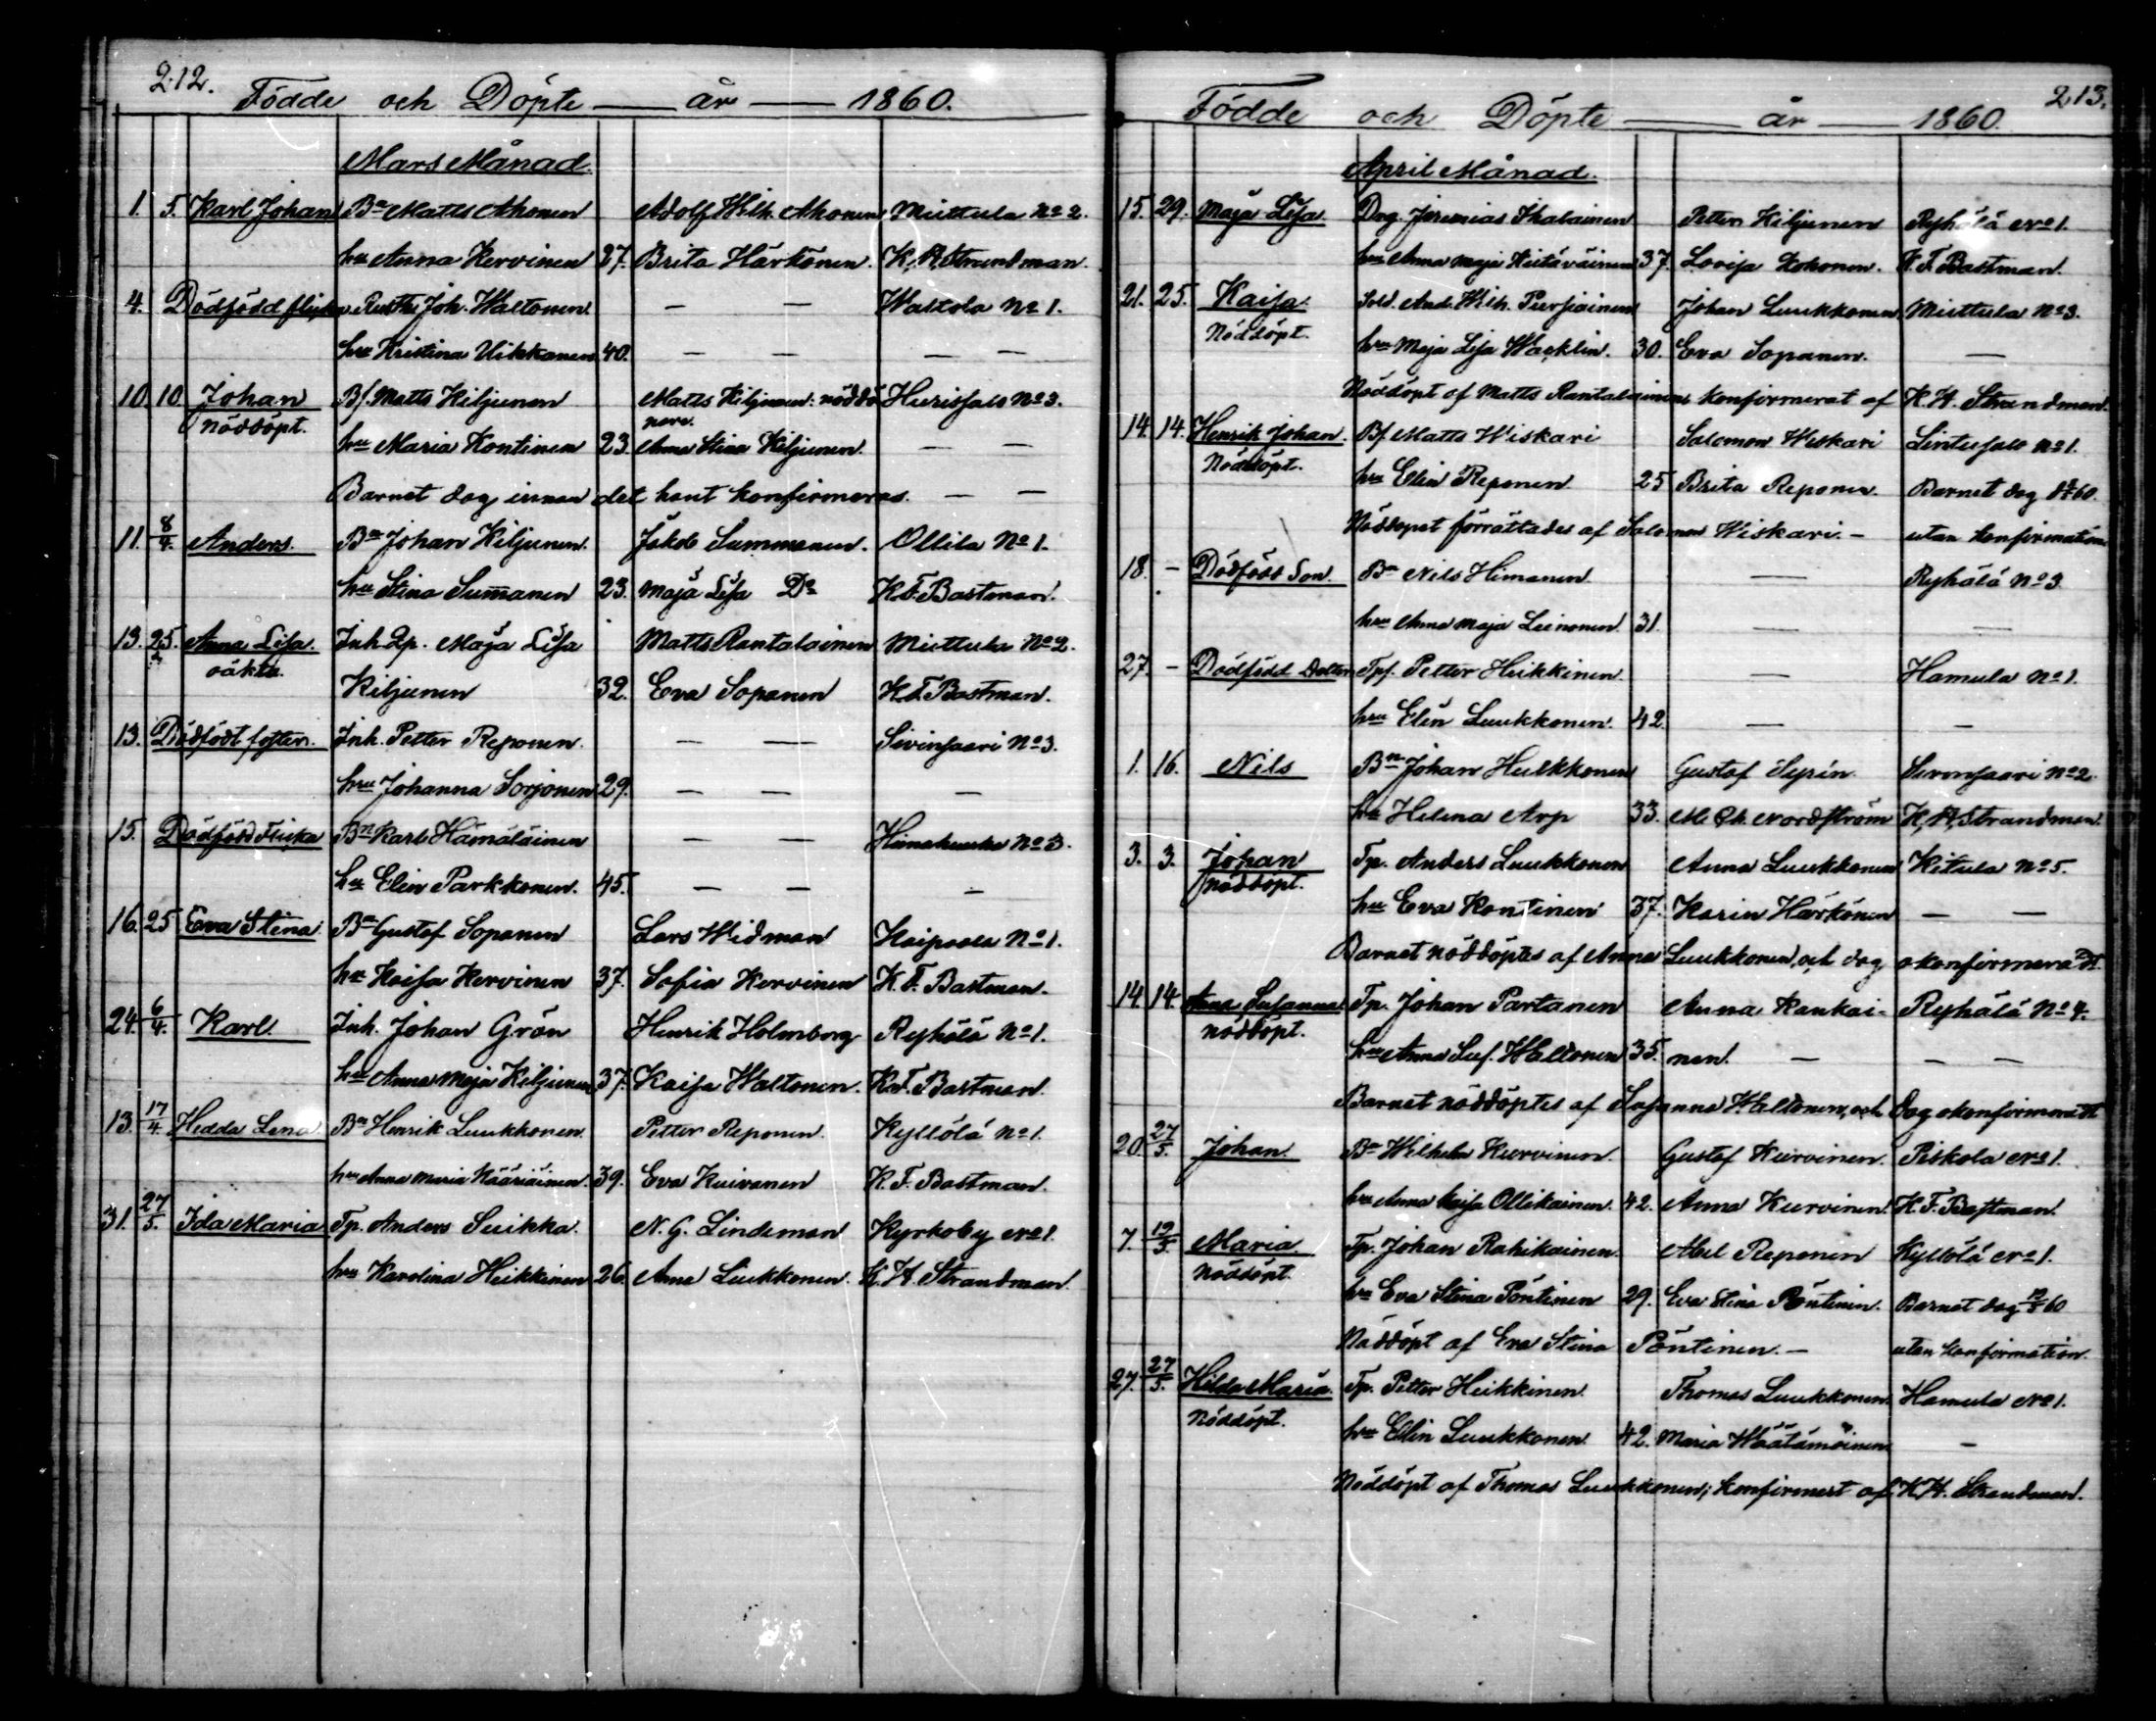 212.
Födde och Döpte — år — 1860.
Mars Månad.
1. 5. Karl Johan Bn Matts Ahonen Adolf Wilh. Ahonen Miettula No 2.
hu Anna Kervinen 27. Brita Härkönen. K. H. Strandman.
4. Dödfödd flicka Joh. Waltonen. — — Waltola No 1.
hu Kristina Uikkanen 40. — — — —
10. 10. Johan Bf. Matts Kiljunen Matts Kiljunen nöddö Hurissalo No 3.
nöddöpt. pare.
hu Maria Kontinen 23. Anna Stina Kiljunen. — —
Barnet dog innan det hant konfirmeras. — —
11. 8/4. Anders. Bn Johan Kiljunen. Jakob Summanen. Ollila No 1.
hu Stina Summanen 23. Maja Lisa Do K. F. Bastman.
13. 25. Anna Lisa. Inh. Dp. Maja Lisa Matts Rantalainen Miettula No 2.
oäkta.
Kiljunen 32. Eva Sopanen K. F. Bastman.
13. Dödfödt foster. Inh. Petter Reponen. — — Sivinsaari No 3.
hu Johanna Sorjonen 29. — — —
15. Dödfödd Flicka Bn Karl Hämäläinen — — No 3.
hu Elin Parkkonen. 45. — — —
16. 25 Eva Stina Bn Gustaf Sopanen Lars Widman Kaipaala No 1.
hu Kaisa Kervinen 37. Sofia Kervinen K. F. Bastman.
24. 6/4. Karl. Inh. Johan Grön Henrik Holmborg Ryhälä No 1.
hu Anna Maja Kiljunen 37. Kaisa Waltonen. K. F. Bastman.
13. 17/4. Hedda Lena. Bn Henrik Luukkonen. Petter Reponen. Kyllölä No 1.
hu Anna Maria Kääriäinen. 39. Eva Kuivanen K. F. Bastman.
31. 27/5. Ida Maria Tp. Anders Suikka. N. G. Lindeman Kyrkoby No 1.
hu Karolina Heikkinen 26. Anna Luukkonen. K. H. Strandman.
213.
Födde och Döpte — år — 1860.
April Månad.
15. 29. Maja Lisa Dag. Jeremias Ihalainen Petter Kiljunen Ryhälä No 1.
hu Anna Maja 37. Lovisa K. F. Bastman.
21. 25. Kaisa. Sold. And. Wilh. Johan Luukkonen Miettula No 3.
Nöddöpt.
hu Maja Lisa Wacklin. 30. Eva Sopanen. —
Nöddöpt af Matts Rantalainen konfirmerat af K. H. Strandman.
14. 14. Henrik Johan. Bf. Matts Wiskari Salomon Wiskari Lintusalo No 1.
Nöddöpt.
hu Elin Reponen 25 Brita Reponen. Barnet dog
Nöddopet förrättades af Salomon Wiskari. — utan konfirmation
18. — Dödfödd Son. Bn Nils Himanen — Ryhälä No 3
hu Anna Maja Leinonen. 31. — —
27. — Dödfödd Dotter Tp. Petter Heikkinen. — Hamula No 1.
hu Elin Luukkonen. 42. — —
1. 16. Nils Bn Johan Hulkkonen Gustaf Syrén Sivinsaari No 2.
hu Helena Arp 33. M. Ch. Nordström K. H. Strandman.
3. 3. Johan Tp. Anders Luukkonen Anna Luukkonen Kitula No 5.
nöddöpt.
hu Eva Kontinen 37. Karin Härkönen — —
Barnet nöddöptes af Anna Luukkonen, och dog okonfirmeradt.
14. 14. Anna Susanna. Tp. Johan Partanen Anna Kankai- Ryhälä No 4.
nöddöpt.
hu Anna Sus. Waltonen 35. nen. — — —
Barnet nöddöptes af Susanna Waltonen, och dog okonfirmeradt
20. 27/5. Johan. Bn Wilhelm Kurvinen. Gustaf Kurvinen. Piskola No 1.
hu Anna Kaisa Ollikainen. 42. Anna Kurvinen. K. F. Bastman.
7. 12/5. Maria. Tp. Johan Rahikainen. Abel Reponen Kyllölä No 1.
Nöddöpt.
hu Eva Stina Pöntinen 29. Eva Stina Pöntinen. Barnet dog 12/5 60
Nöddöpt af Eva Stina Pöntinen. — utan konfirmation.
27. 27/5. Hilda Maria. Tp. Petter Heikkinen Thomas Luukkonen Hamula No 1.
Nöddöpt.
hu Elin Luukkonen 42. Maria Wäätämöinen —
Nöddöpt af Thomas Luukkonen; konfirmert af K. H. Strandman.